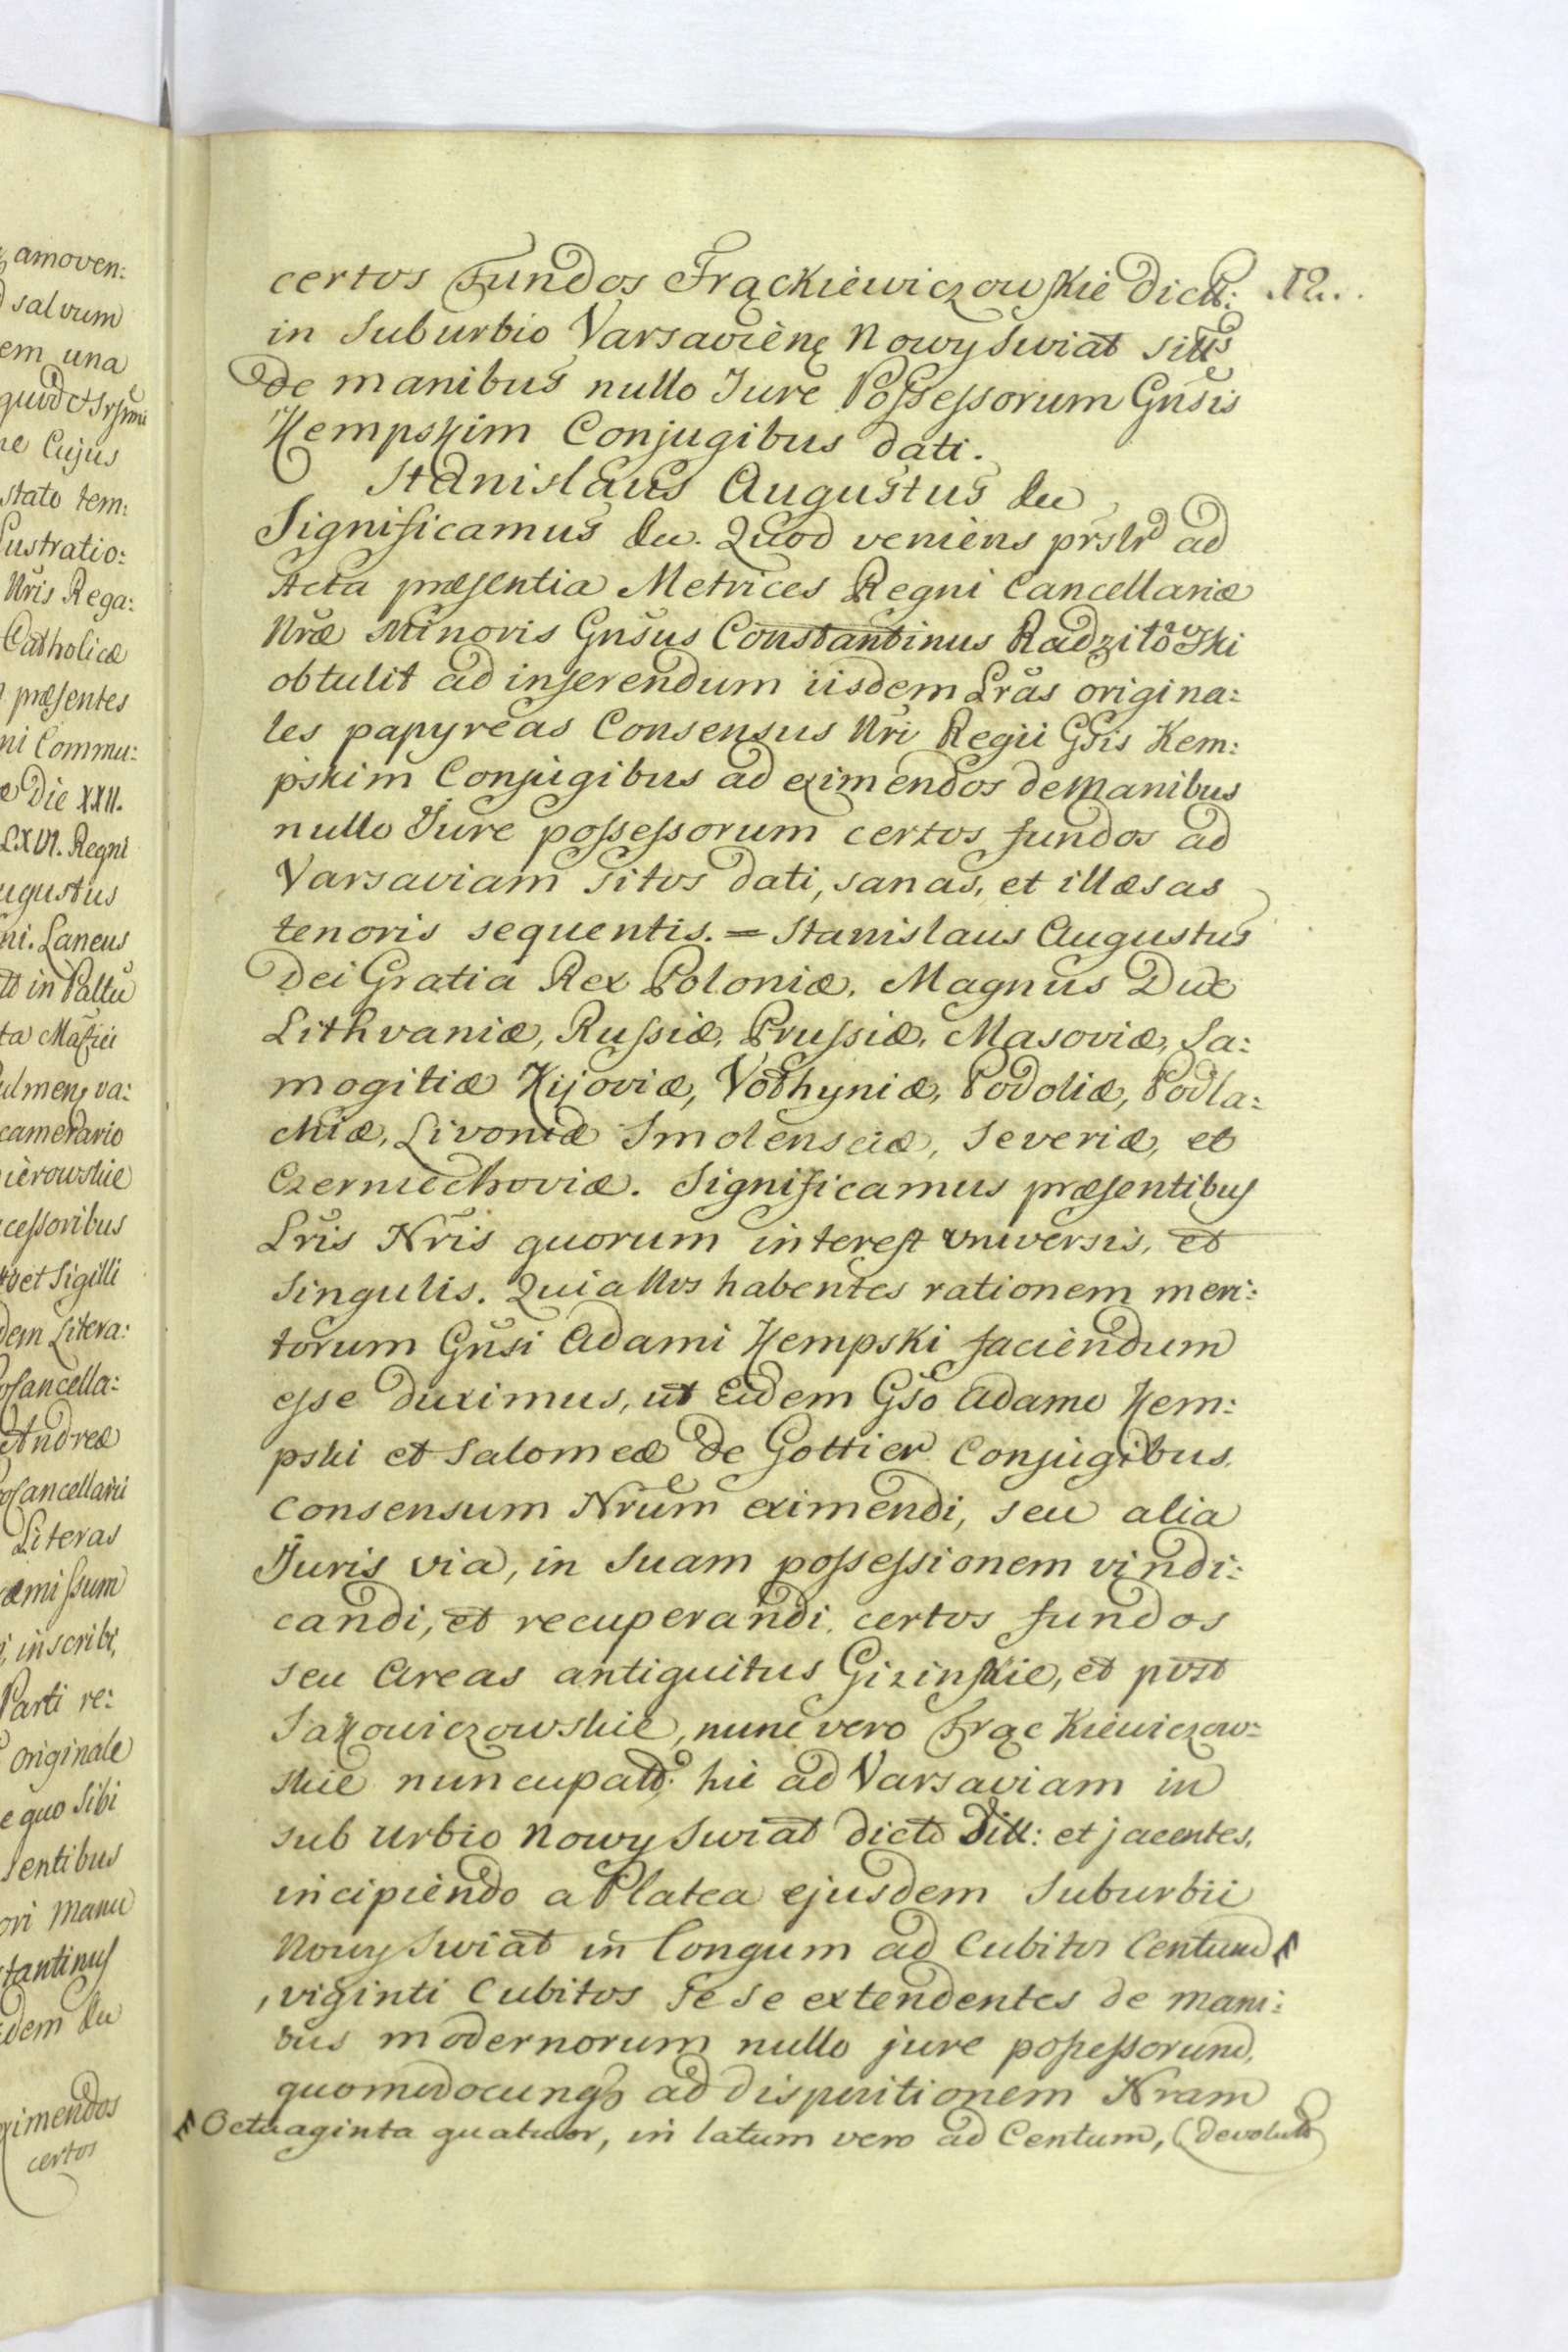 amoven:
salvum
em una
ne Cujus
stato tem:
Lustratio:
Nris Rega:
Catholicæ
præsentes
ni Commu:
Die XXII.
LXVI. Regni
ugustus
ni. Laneus
in Paltũ
ulmens va:
camerario
ierowskie
cessoribus
et Sigilli
dem Litera:
ofancella:
Andreæ
ofancellarii
Literas
æmissum
inscribi,
Parti re:
originale
e quo Sibi
sentibus
ori Manu
tantinus
idem &c
eximendos
certos
certos Fundos Frąckiewiczowskie dict: 12.
in Suburbio Varsaviẽnę Nowy Swiat sitũs
de manibus nullo Jure Possessorum Gñsis
Kempskim Conjugibus dati.
Stanislaus Augustus &c
Significamus &c. Quod veniens prslr ad
Acta præsentia Metrices Regni Cancellariæ
Nræ Minoris Gnsus Constantinus Radzitowski
obtulit ad inserendum iisdem Lras origina:
les papyreas Consensus Nri Regii Gsis Kem:
pskim Conjugibus ad eximendos de Manibus
nullo Jure possessorum certos fundos ad
Varsaviam sitos dati, sanas, et illæsas
tenoris sequentis. = Stanislaus Augustus
Dei Gratia Rex Poloniæ. Magnus Dux
Lithvaniæ, Russiæ, Prussiæ, Masoviæ, Sa:
mogitiæ Kijoviæ, Volhyniæ, Podoliæ, Podla:
chiæ, Livoniæ Smolensciæ, Severiæ, et
Czerniechoviæ. Significamus præsentibus
Lris Nris quorum interest universis, et
Singulis. Quia Nos habentes rationem meri:
torum Gnsi Adami Kempski faciendum
esse duximus, ut Eidem Gso Adamo Kem:
pski et Salomeæ de Gottier Conjugibus.
consensum Nrum eximendi, seu alia
Juris via, in Suam possessionem vindi:
candi, et recuperandi certos fundos
seu Areas antiquitus Gizinskie, et post
Sakowiczowskie, nunc vero Frąckiewiczow:
skie nuncupatt: hic ad Varsaviam in
sub urbio Nowy Swiat dicto Sitt: et jacentes,
incipiendo a Platea ejusdem Suburbii
Nowy Swiat in longum ad Cubitos Centum
, viginti Cubitos Se se extendentes de mani:
bus modernorum nullo jure possessorum,
quomodocunq ad dispositionem Nram
Octuaginta quatuor, in latum vero ad Centum, (devolutt